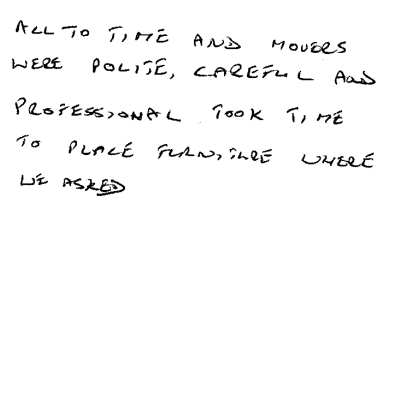 ALL TO TIME AND MOVERS
WERE POLITE, CAREFUL AND
PROFESSIONAL TOOK TIME
TO PLACE FURNITURE WHERE
WE ASKED